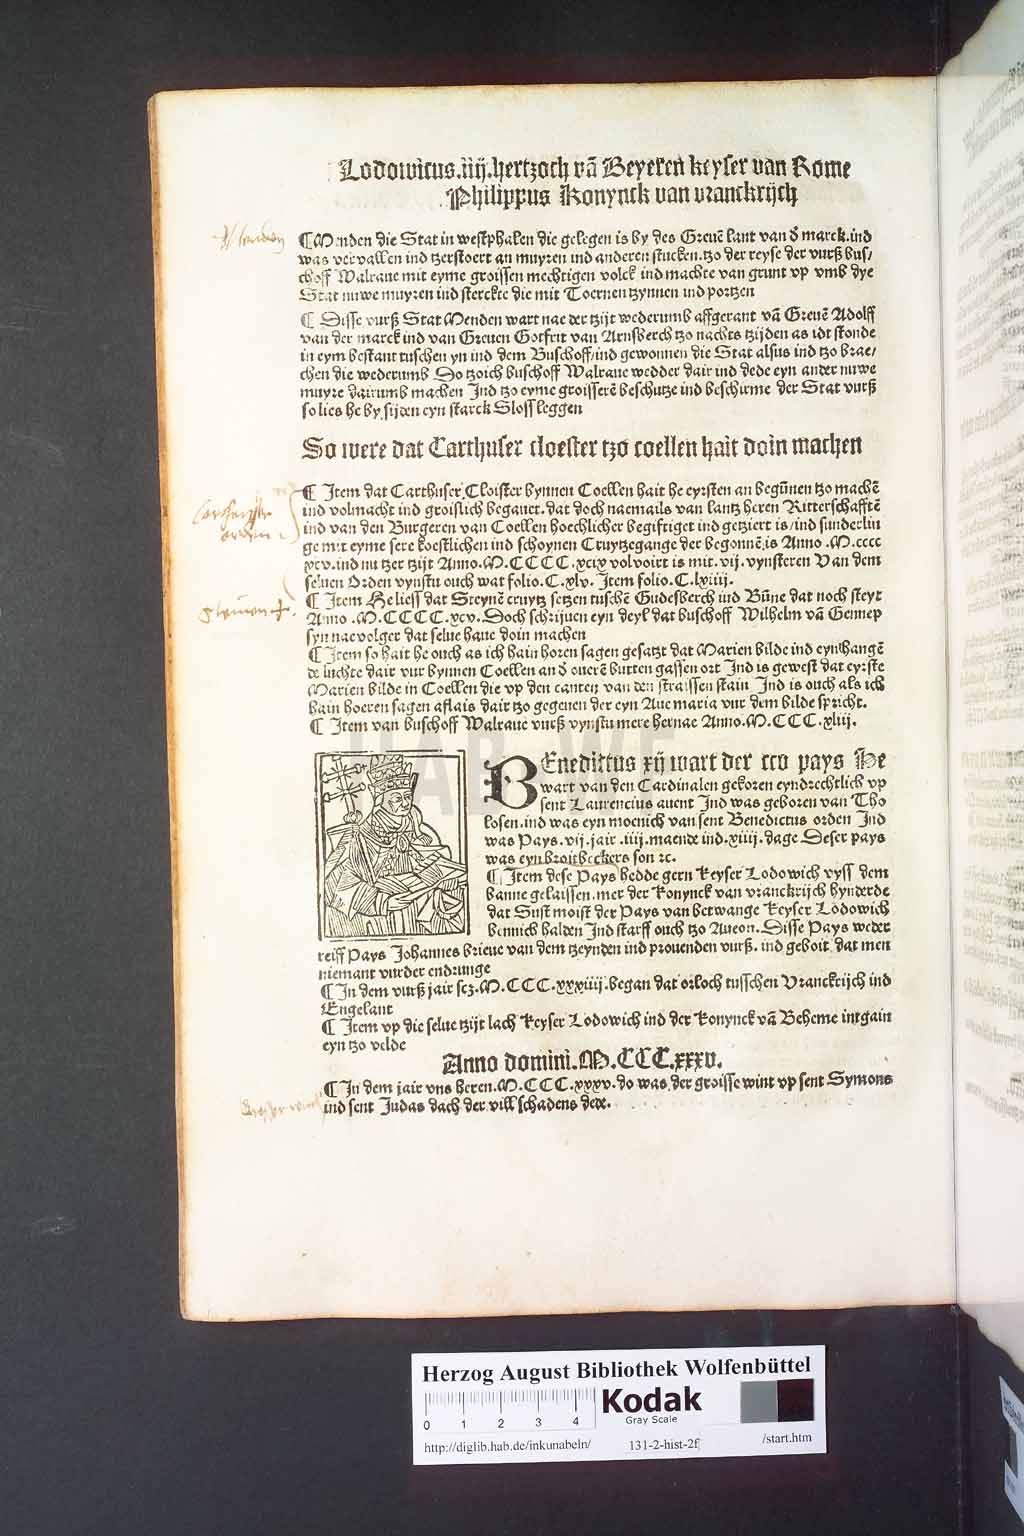 Lodowicus.iiij.hertzoch vā Beyeren keyser van Rome
Philippus Konynck van vranckrijch
¶Menden die Stat in westphalen die gelegen is by des Greuē lant van d marck.ind
was vervallen ind tzerstoert an muyren ind anderen stucken.tzo der reyse der vurß bus/
choff Walraue mit eyme groissen mechtigen volck ind machte van grunt vp vmb dye
Stat nuwe muyren ind sterckte die mit Toernen tzynnen ind portzen
¶ Disse vurß Stat Menden wart nae der tzijt wederumb affgerant vā Greuē Adolff
van der marck ind van Greuen Gotfrit van Arnsberch tzo nachts tzijden as idt stonde
in eym bestant tuschen yn ind dem Buschoff/ind gewonnen die Stat alsus ind tzo brae/
chen die wederumb Do tzoich buschoff Walraue wedder dair ind dede eyn ander nuwe
muyre dairumb machen Ind tzo eyme groisserē beschutze ind beschirme der Stat vurß
so lies he by sijden eyn starck Sloss leggen
So were dat Carthuser cloester tzo coellen hait doin machen
¶ Item dat Carthuser Cloister bynnen Coellen hait he eyrsten an begūnen tzo machē
ind volmacht ind groislich begauet.dat doch naemails van lantz heren Ritterschafftē
ind van den Burgeren van Coellen hoechlicher begiftiget ind getziert is/ind sunderlin
ge mit eyme sere koestlichen ind schoynen Cruytzegange der begonnē is Anno .M.cccc
xcv.ind nu tzer tzijt Anno.M.CCCC.xcix volvoirt is mit.vij.vynsteren Van dem
seluen Orden vynstu ouch wat folio.C.xlv. Item folio.C.lxiiij.
¶ Item He liess dat Steynē cruytz setzen tuschē Gudesberch ind Būne dat noch steyt
Anno .M.CCCC.xcv. Doch schrijuen eyn deyl dat buschoff Wilhelm vā Gennep
syn naevolger dat selue haue doin machen
¶ Item so hait he ouch as ich hain horen sagen gesatzt dat Marien bilde ind eyn hangē
de luchte dair vur bynnen Coellen an d ouerē butten gassen ort Ind is gewest dat eyrste
Marien bilde in Coellen die vp den canten van den straissen stain Ind is ouch als ich
hain hoeren sagen aflais dair tzo gegeuen der eyn Aue maria vur dem bilde spricht.
¶ Item van buschoff Walraue vurß vynstu mere hernae Anno.M.CCC.xliij.
BEnedictus xij wart der cco pays He
wart van den Cardinalen gekoren eyndrechtlich vp
sent Laurencius auent Ind was geboren van Tho
losen.ind was eyn moenich van sent Benedictus orden Ind
was Pays.vij.jair.iiij.maende ind.xiiij.dage Deser pays
was eyn broitbeckers son ꝛc.
¶ Item dese Pays hedde gern keyser Lodowich vyss dem
banne gelaissen.mer der konynck van vranckrijch hynderde
dat Sust moist der Pays van betwange keyser Lodowich
bennich halden Ind starff ouch tzo Aueon.Disse Pays weder
reiff Pays Johannes brieue van dem tzeynden ind prouenden vurß.ind geboit dat men
niemant vurder endrunge
¶ In dem vurß jair scz.M.CCC.xxxiiij.began dat orloch tusschen Vranckrijch ind
Engelant
¶ Item vp die selue tzijt lach keyser Lodowich ind der konynck vā Beheme intgain
eyn tzo velde
Anno domini.M.CCC.xxxv.
¶ In dem jair vns heren.M.CCC.xxxv.do was der groisse wint vp sent Symons
ind sent Judas dach der vill schadens dede.
Herzog August Bibliothek Wolfenbüttel
0 1 2 3 4
Kodak
Gray Scale
http://diglib.hab.de/inkunabeln/ 131-2-hist-2f /start.htm